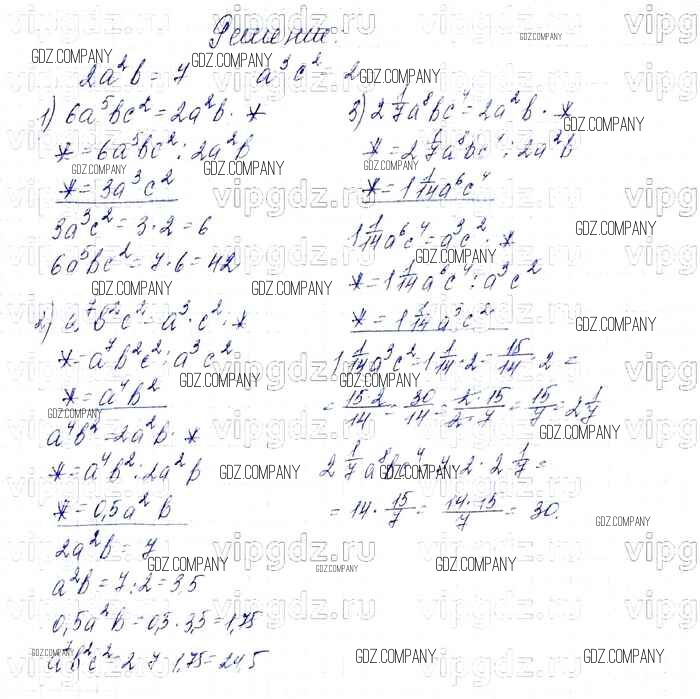 Решение:
2a²b = 7 a³c² = 2
1) 6a⁵bc² = 2a²b · *
* = 6a⁵bc² : 2a²b
* = 3a³c²
3a³c² = 3·2 = 6
6a⁵bc² = 7·6 = 42
2) a⁷b²c² = a³·c²·*
* = a⁷b²c² : a³c²
* = a⁴b²
a⁴b² = 2a²b · *
* = a⁴b² : 2a²b
* = 0,5a²b
2a²b = 7
a²b = 7:2 = 3,5
0,5a²b = 0,5·3,5 = 1,75
a⁷b²c² = 2·7·1,75 = 24,5
3) 2 1/7 a⁸bc⁴ = 2a²b · *
* = 2 1/7 a⁸bc⁴ : 2a²b
* = 1 1/14 a⁶c⁴
1 1/14 a⁶c⁴ = a³c² · *
* = 1 1/14 a⁶c⁴ : a³c²
* = 1 1/14 a³c²
1 1/14 a³c² = 1 1/14 · 2 = 15/14 · 2 =
= 15·2/14 = 30/14 = 2·15/2·7 = 15/7 = 2 1/7
2 1/7 a⁸bc⁴ = 7·2·2 1/7 =
= 14 · 15/7 = 14·15/7 = 30.
GDZ.COMPANY
vipgdz.ru